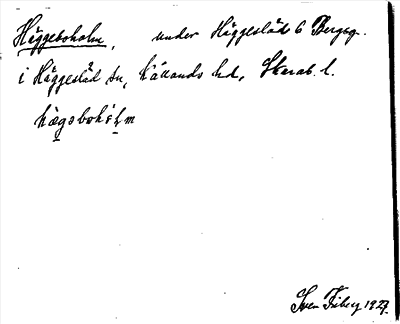 Häggeboholm, under Häggesläd 6 Bergsg.
i Häggesläd sn, Kållands hd, Skarab. l.
hägsbohȯlm
Sven Friberg 1927.